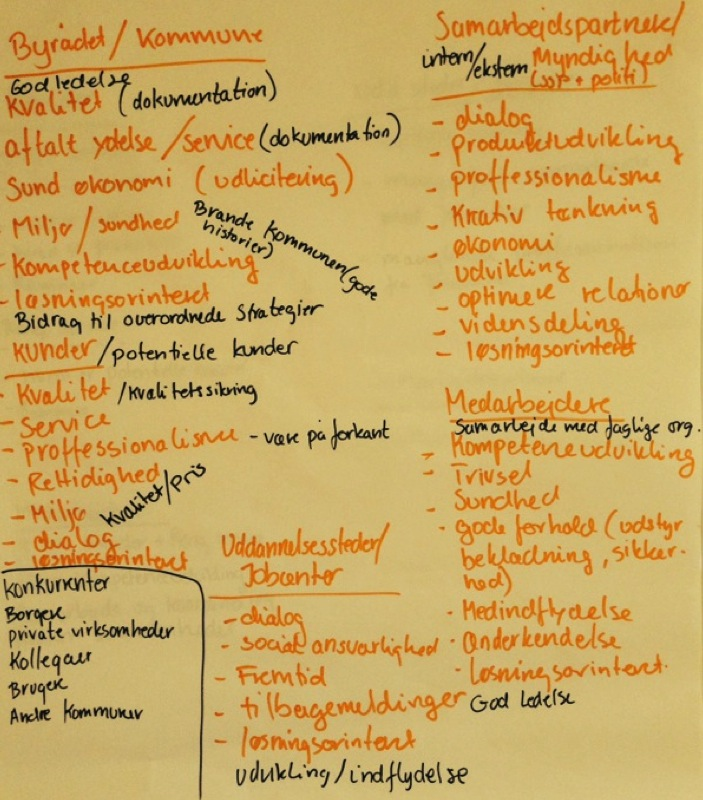 Byrådet/Kommune
God ledelse
Kvalitet (dokumentation)
aftalt ydelse/service (dokumentation)
Sund økonomi (udlicitering)
- Miljø/sundhed
Brande Kommunen (gode
historier)
- Kompetenceudvikling
- løsningsorinteret
Bidrag til overordnede Strategier
Kunder/potentielle kunder
- Kvalitet/kvalitetssikring
- Service
- Proffessionalisme - være på forkant
- Rettidighed
- Miljø
Kvalitet/Pris
- dialog
- løsningsorinteret
Konkurrenter
Borgere
private virksomheder
Kollegaer
Brugere
Andre Kommuner
Uddannelsessteder/
Jobcenter
- dialog
- social ansvarlighed
- Fremtid
- tilbagemeldinger
- løsningsorinteret
udvikling/indflydelse
Samarbejdspartnere/
intern/ekstern Myndighed
(ssp + politi)
- dialog
- produktudvikling
- proffessionalisme
- Kreativ tænkning
- økonomi
- udvikling
- optimere relationer
- vidensdeling
- løsningsorinteret
Medarbejdere
Samarbejde med faglige org.
- Kompetenceudvikling
- Trivsel
- Sundhed
- gode forhold (udstyr
bekladning, sikker-
hed)
- Medindflydelse
- Anderkendelse
- Løsningsorinteret.
God Ledelse